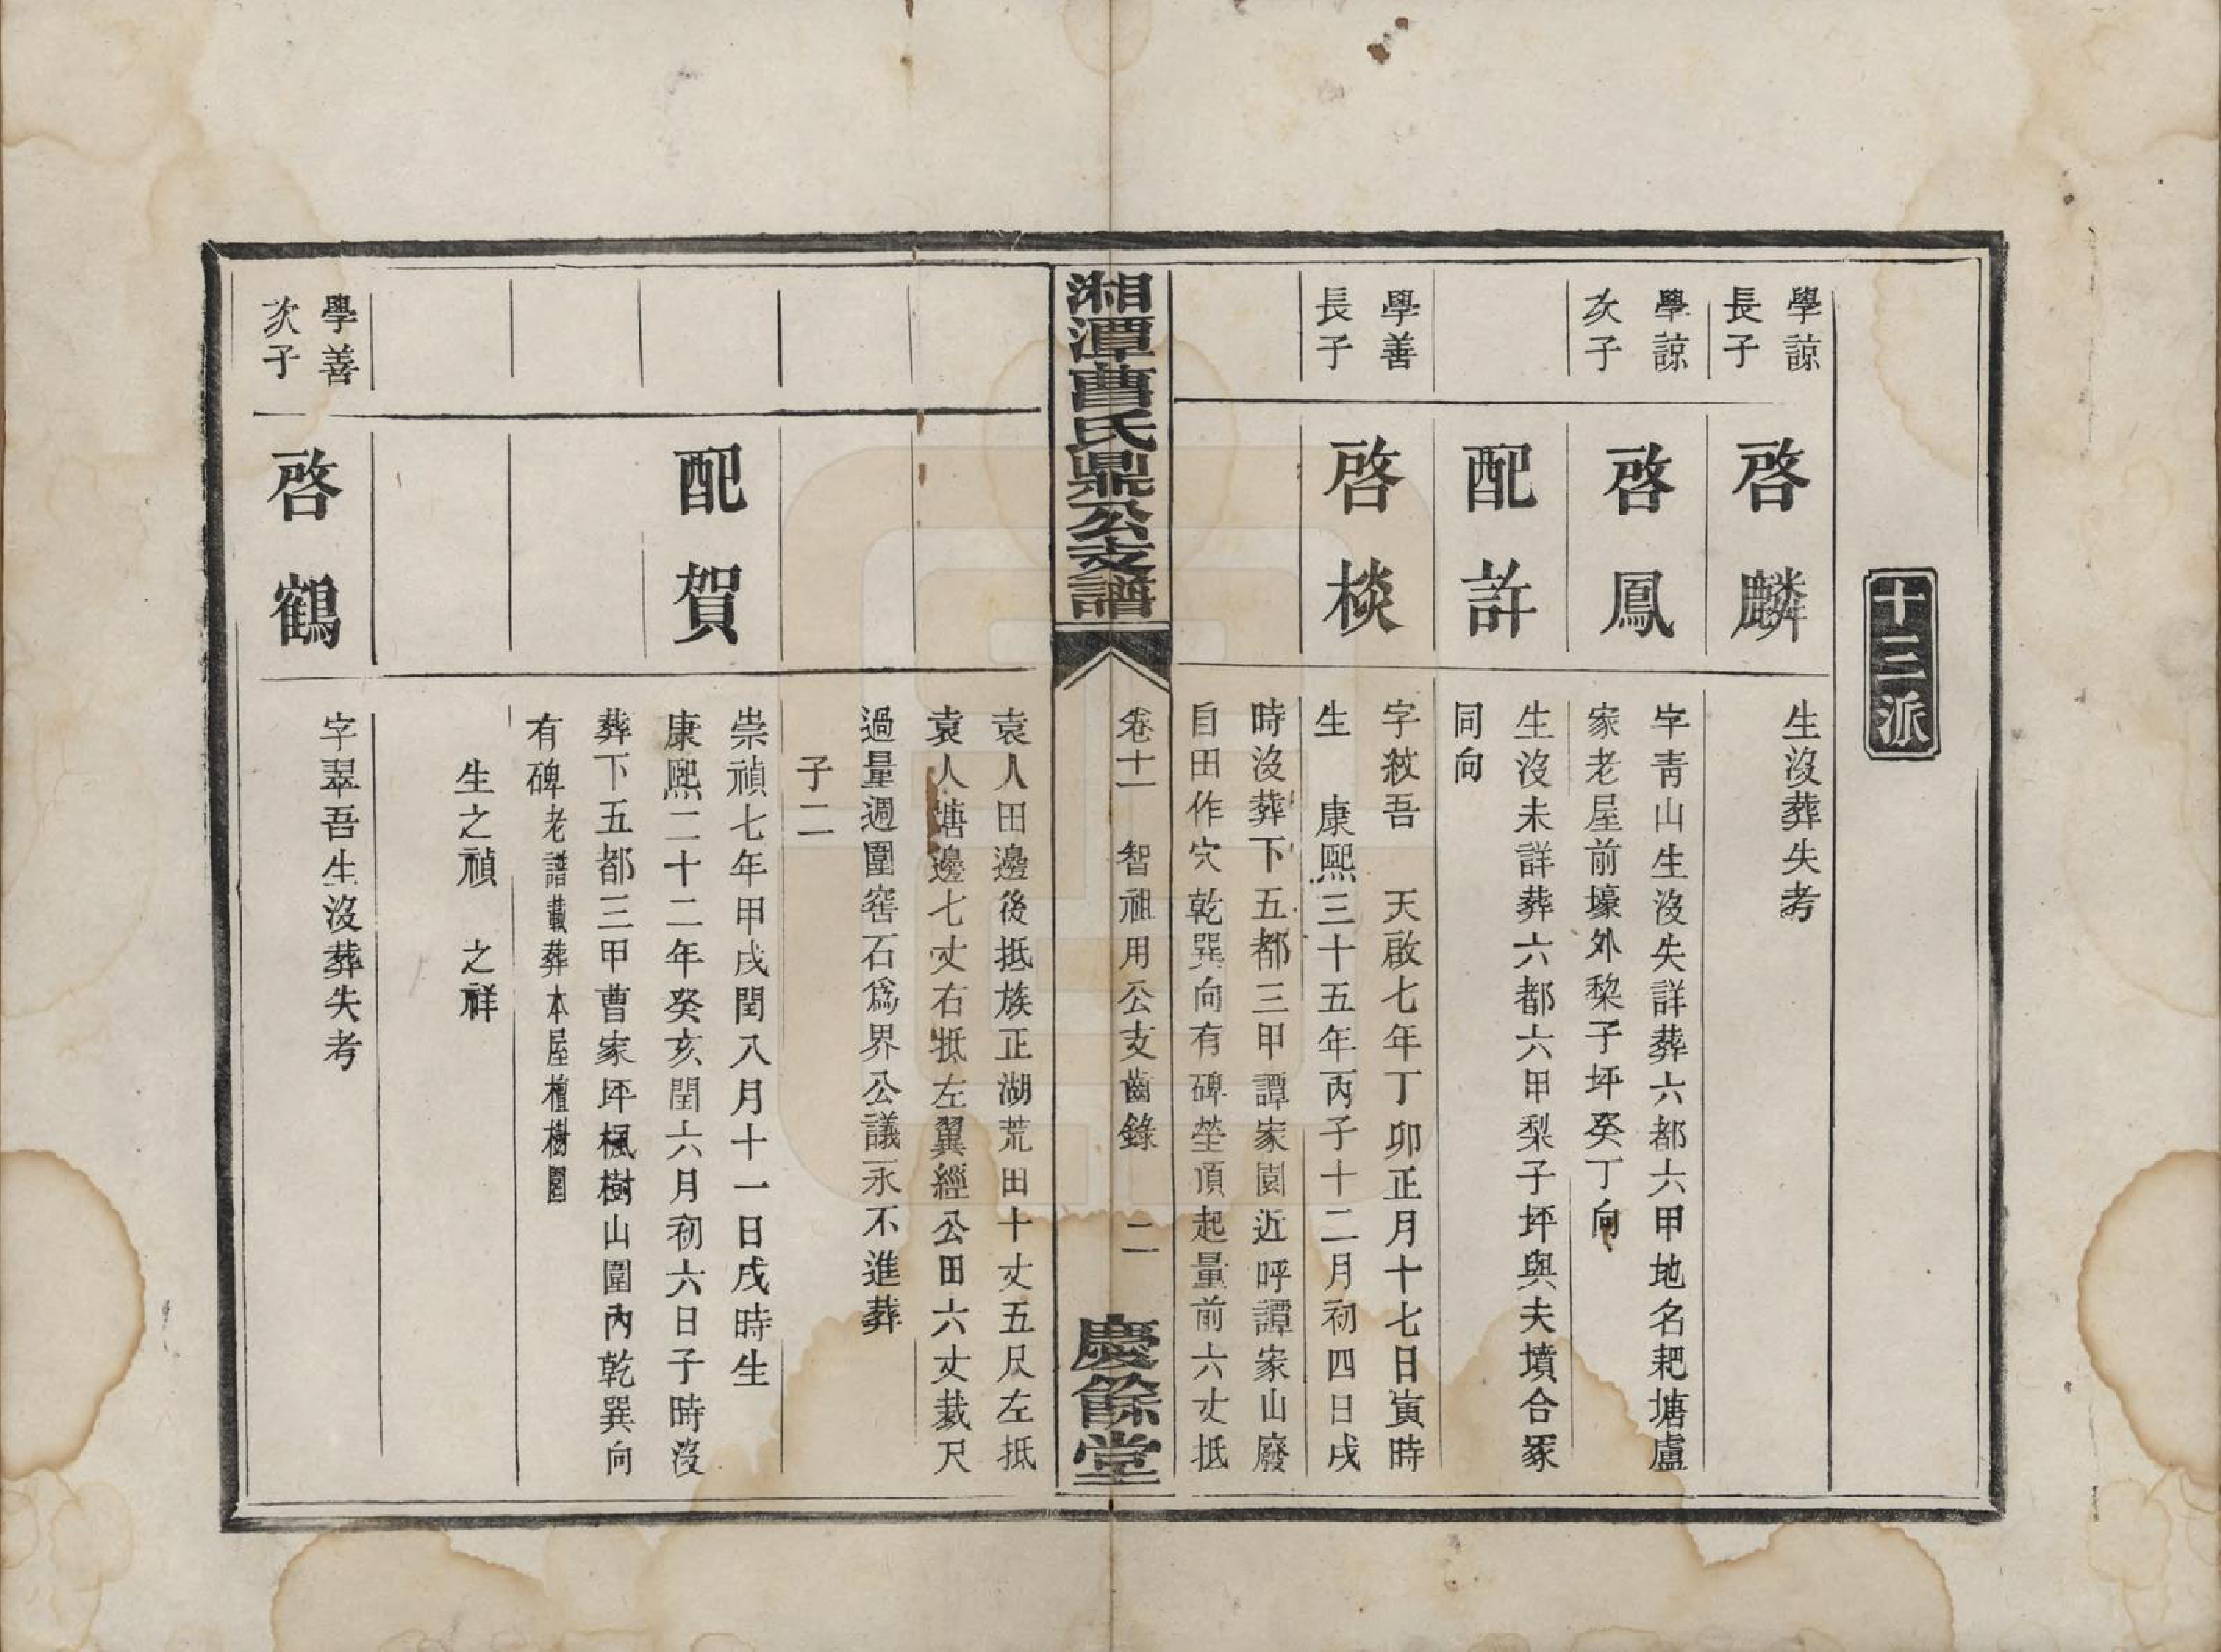 十三派
學諒
長子
啓麟
生沒葬失考
學諒
次子
啓鳳
字青山生沒失詳葬六都六甲地名耙塘盧
家老屋前壕外棃子坪癸丁向
配許
生沒未詳葬六都六甲梨子坪與夫墳合冢
同向
學善
長子
啓棪
字敍吾　天啟七年丁卯正月十七日寅時
生　康熙三十五年丙子十二月初四日戌
時沒葬下五都三甲譚家園近呼譚家山廢
自田作穴乾巽向有碑塋頂起量前六丈抵
湘潭曹氏鼎公支譜
卷十一　智祖用公支齒錄　二
慶餘堂
袁人田邊後抵族正湖荒田十丈五尺左抵
袁人塘邊七丈右抵左翼經公田六丈裁尺
過量週圍窖石爲界公議永不進葬
子二
配賀
崇禎七年甲戌閏八月十一日戌時生
康熙二十二年癸亥閏六月初六日子時沒
葬下五都三甲曹家坪楓樹山圍內乾巽向
有碑老譜載葬本屋檀樹園
生之禎　之祥
學善
次子
啓鶴
字翠吾生沒葬失考